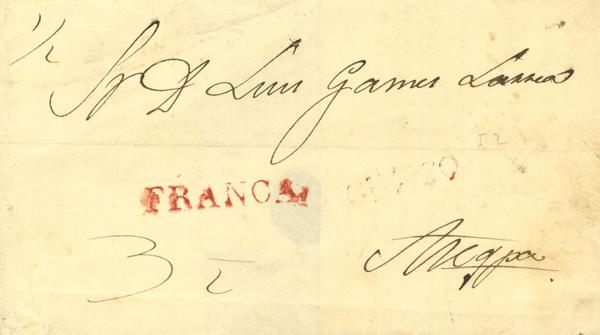 1/2
Sr D Luis Gamez Larrea
52
FRANCA. CUZCO
3 ½
Areqpa